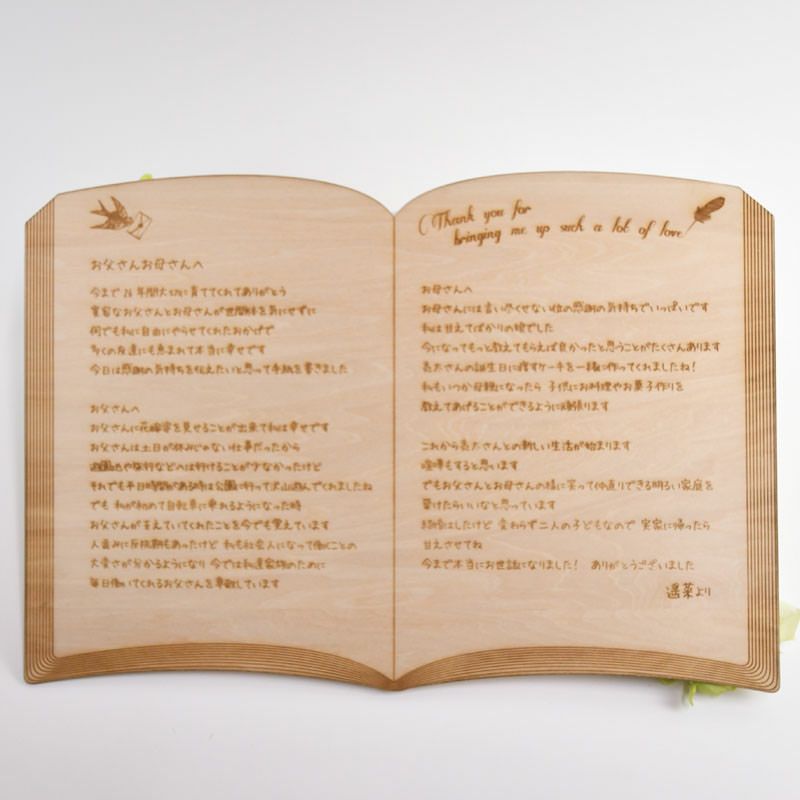 お父さんお母さんへ
今まで26年間大切に育ててくれてありがとう
実家なお父さんとお母さんが世間体を気にせずに
何でも私に自由にやらせてくれたおかげで
多くの友達にも恵まれて本当に幸せです
今日は感謝の気持ちを伝えたいと思って手紙を書きました
お父さんへ
お父さんに花嫁姿を見せることが出来て私は幸せです
お父さんは土日が休みじゃない仕事だったから
遊園地や旅行などへは行けることが少なかったけど
それでも平日時間がある時は公園に行って沢山遊んでくれましたね
でも 私が初めて自転車に乗れるようになった時
お父さんが支えていてくれたことを今でも覚えています
人並みに反抗期もあったけど 私も社会人になって働くことの
大変さが分かるようになり 今では私達家族のために
毎日働いてくれるお父さんを尊敬しています
Thank you for
bringing me up such a lot of love
お母さんへ
お母さんには言い尽くせない位の感謝の気持ちでいっぱいです
私は甘えてばかりの娘でした
今になってもっと教えてもらえば良かったと思うことがたくさんあります
亮太さんの誕生日に渡すケーキを一緒に作ってくれましたね!
私もいつか母親になったら 子供にお料理やお菓子作りを
教えてあげることができるように頑張ります
これから亮太さんとの新しい生活が始まります
喧嘩もすると思います
でもお父さんとお母さんの様に笑って仲直りできる明るい家庭を
築けたらいいなと思っています
結婚はしたけど 変わらず二人の子どもなので 実家に帰ったら
甘えさせてね
今まで本当にお世話になりました! ありがとうございました
遥菜より